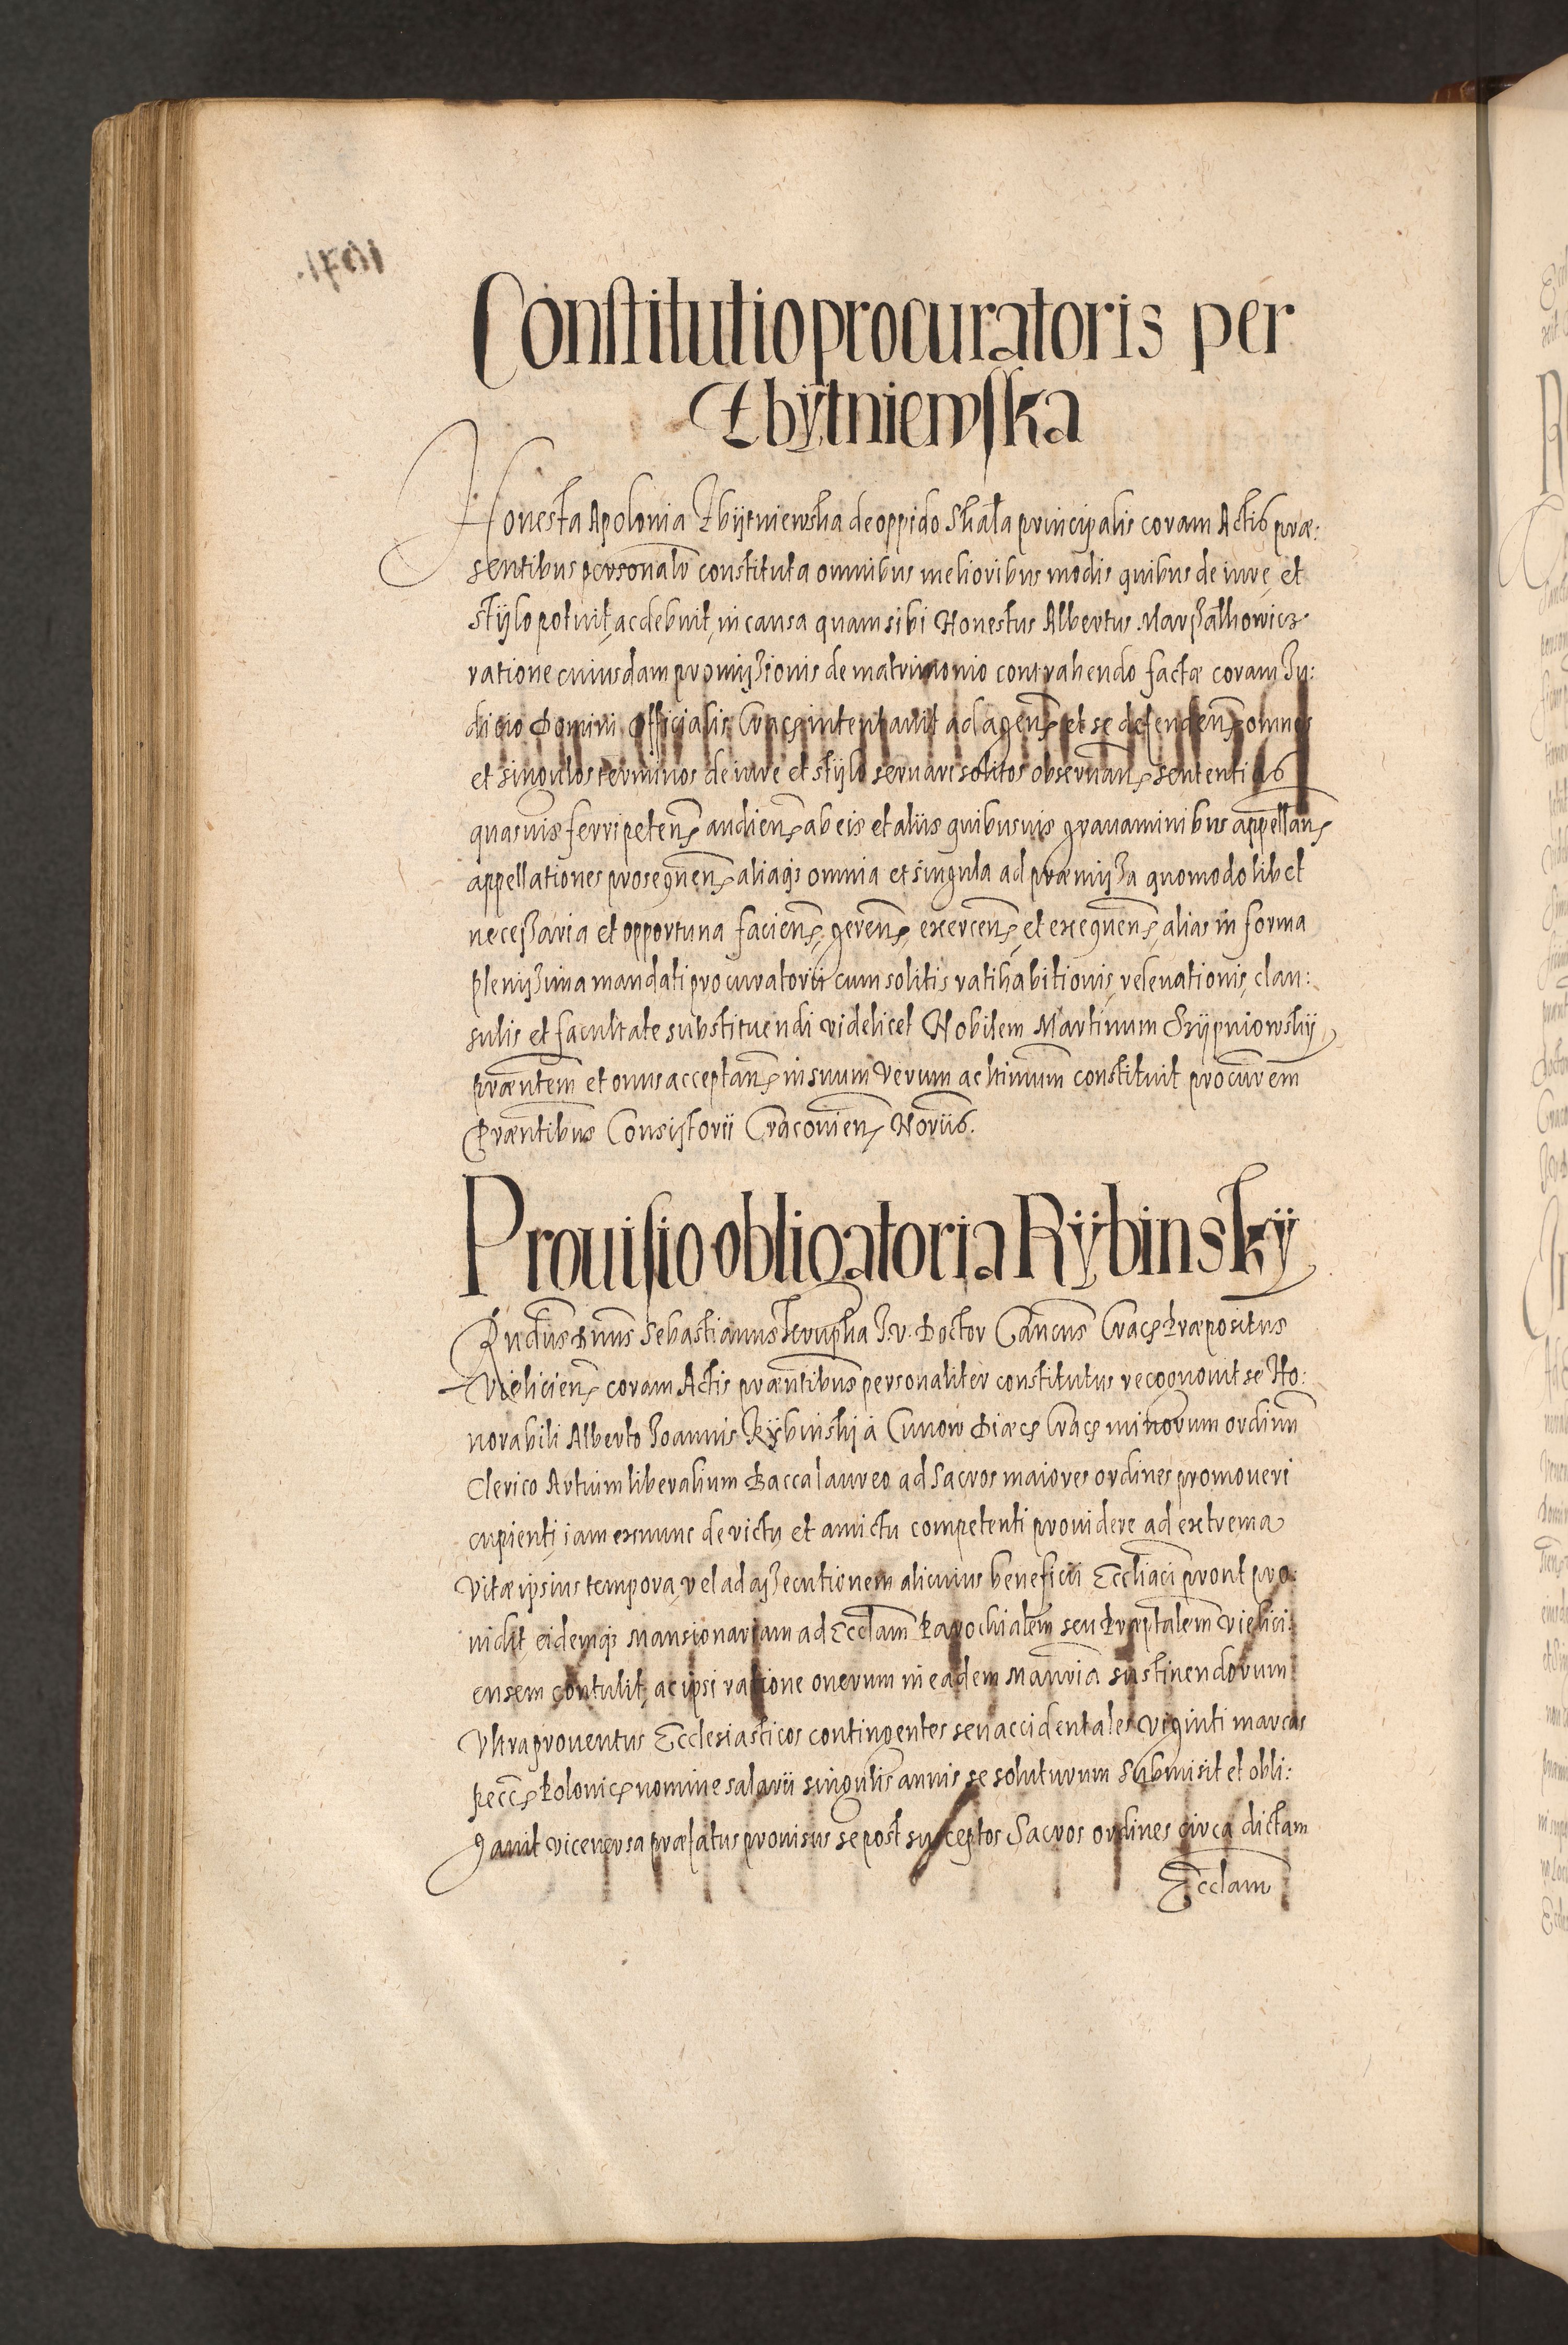 Constitutio procuratoris per
Zbÿtniewska
Honesta Apolonia Zbÿtniewska de oppido Skala principalis coram Actis præ:
sentibus personalr constituta omnibus melioribus modis quibus de iure et
stÿlo potuit, ac debuit, in causa quam sibi Honestus Albertus Marszalkowicz
ratione cuiusdam promißionis de matrimonio contrahendo factæ coram Ju:
dicio Domini Officialis Crac. intentauit ad agen. et se defenden. omnes
et singulos terminos de iure et stÿlo seruari solitos obseruan. sententias
quasuis ferri peten. audien. ab eis et aliis quibusuis grauaminibus appellan.
appellationes prosequen. aliaq; omnia et singula ad præmißa quomodolibet
neceßaria et opportuna facien. geren. exercen. et exequen. alias in forma
plenißima mandati procuratorii cum solitis ratihabitionis, releuationis, clau:
sulis et facultate substituendi videlicet Nobilem Martinum
præntem et onus acceptan. in suum verum ac ltimum constituit procurem
Præntibus Consistorii Cracouien. Noriis.
Prouisio obligatoria Rÿbinskÿ
Rndus Dnus Sebastianus J. v. Doctor Cancus Crac. Præpositus
Vielicien. coram Actis præntibus personaliter constitutus recognouit se Ho:
norabili Alberto Joannis Rÿbinskj à Cunow Diæc. Crac. minorum ordinu
Clerico Artium liberalium Baccalaureo ad Sacros maiores ordines promoueri
cupienti iam exnunc de victu et amictu competenti prouidere ad extrema
vitæ ipsius tempora, vel ad aßecutionem alicuius beneficii Eccliaci prout pro:
uidit, eidemq; Mansionariam ad Ecclam Parochialem seu Præptalem Vielici:
ensem contulit, ac ipsi ratione onerum in eadem Manria sustinendorum
Vltra prouentus Ecclesiasticos contingentes seu accidentales viginti marcas
pecc. Polonic. nomine salarii singulis annis se soluturum submisit et obli:
gauit viceuersa præfatus prouisus se post susceptos Sacros ordines circa dictam
Ecclam